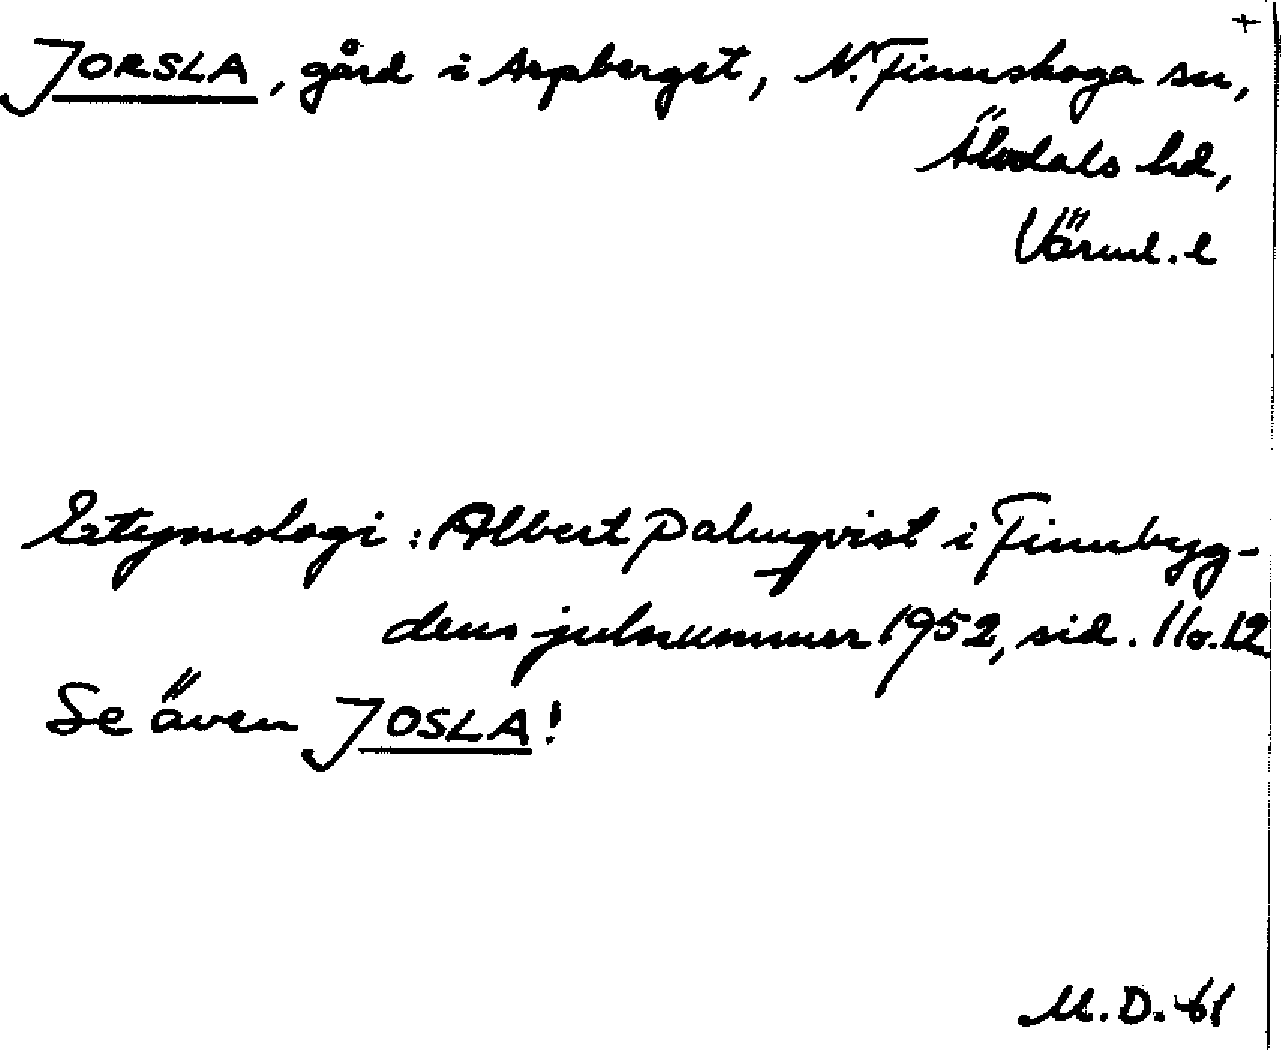 +
JORSLA, gård i Aspberget, N. Finnskoga sn,
Älvdals hd,
Värml. l
Etymologi: Albert Palmqvist i Finnbyg-
dens julnummer 1952, sid. 11 o. 12
Se även JOSLA!
M.D. -61